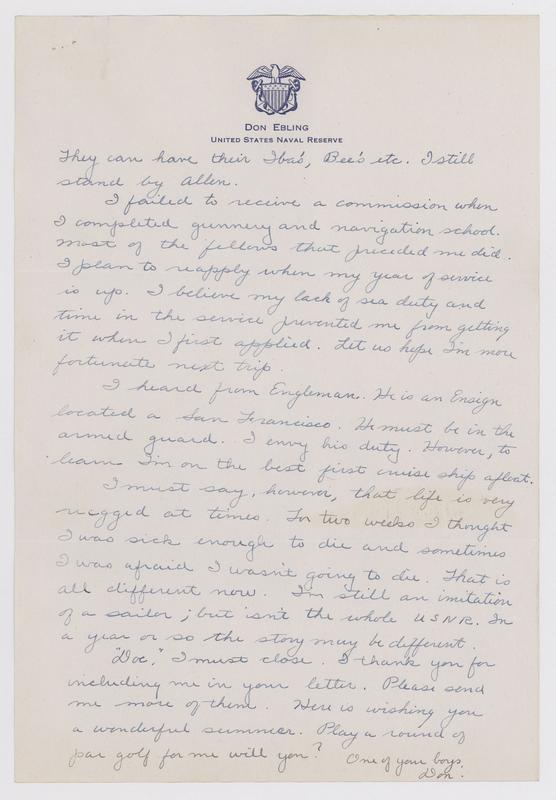 Don Ebling
United States Naval Reserve
They can have their Iba's, Bee's etc. I still
stand by Allen.
I failed to receive a commission when
I completed gunnery and navigation school.
Most of the fellows that preceded me did.
I plan to reapply when my year of service
is up. I believe my lack of sea duty and
time in the service prevented me from getting
it when I first applied. Let us hope I'm more
fortunate next trip.
I heard from Engleman. He is an Ensign
located a San Francisco. He must be in the
armed guard. I envy his duty. However, to
learn I'm on the best first cruise ship afloat.
I must say, however, that life is very
rugged at times. For two weeks I thought
I was sick enough to die and sometimes
I was afraid I wasn't going to die. That is
all different now. I'm still an imitation
of a sailor; but isn't the whole USNR. In
a year or so the story may be different.
"Doc," I must close. I thank you for
including me in your letter. Please send
me more of them. Here is wishing you
a wonderful summer. Play a round of
par golf for me will you? One of your boys,
Don.